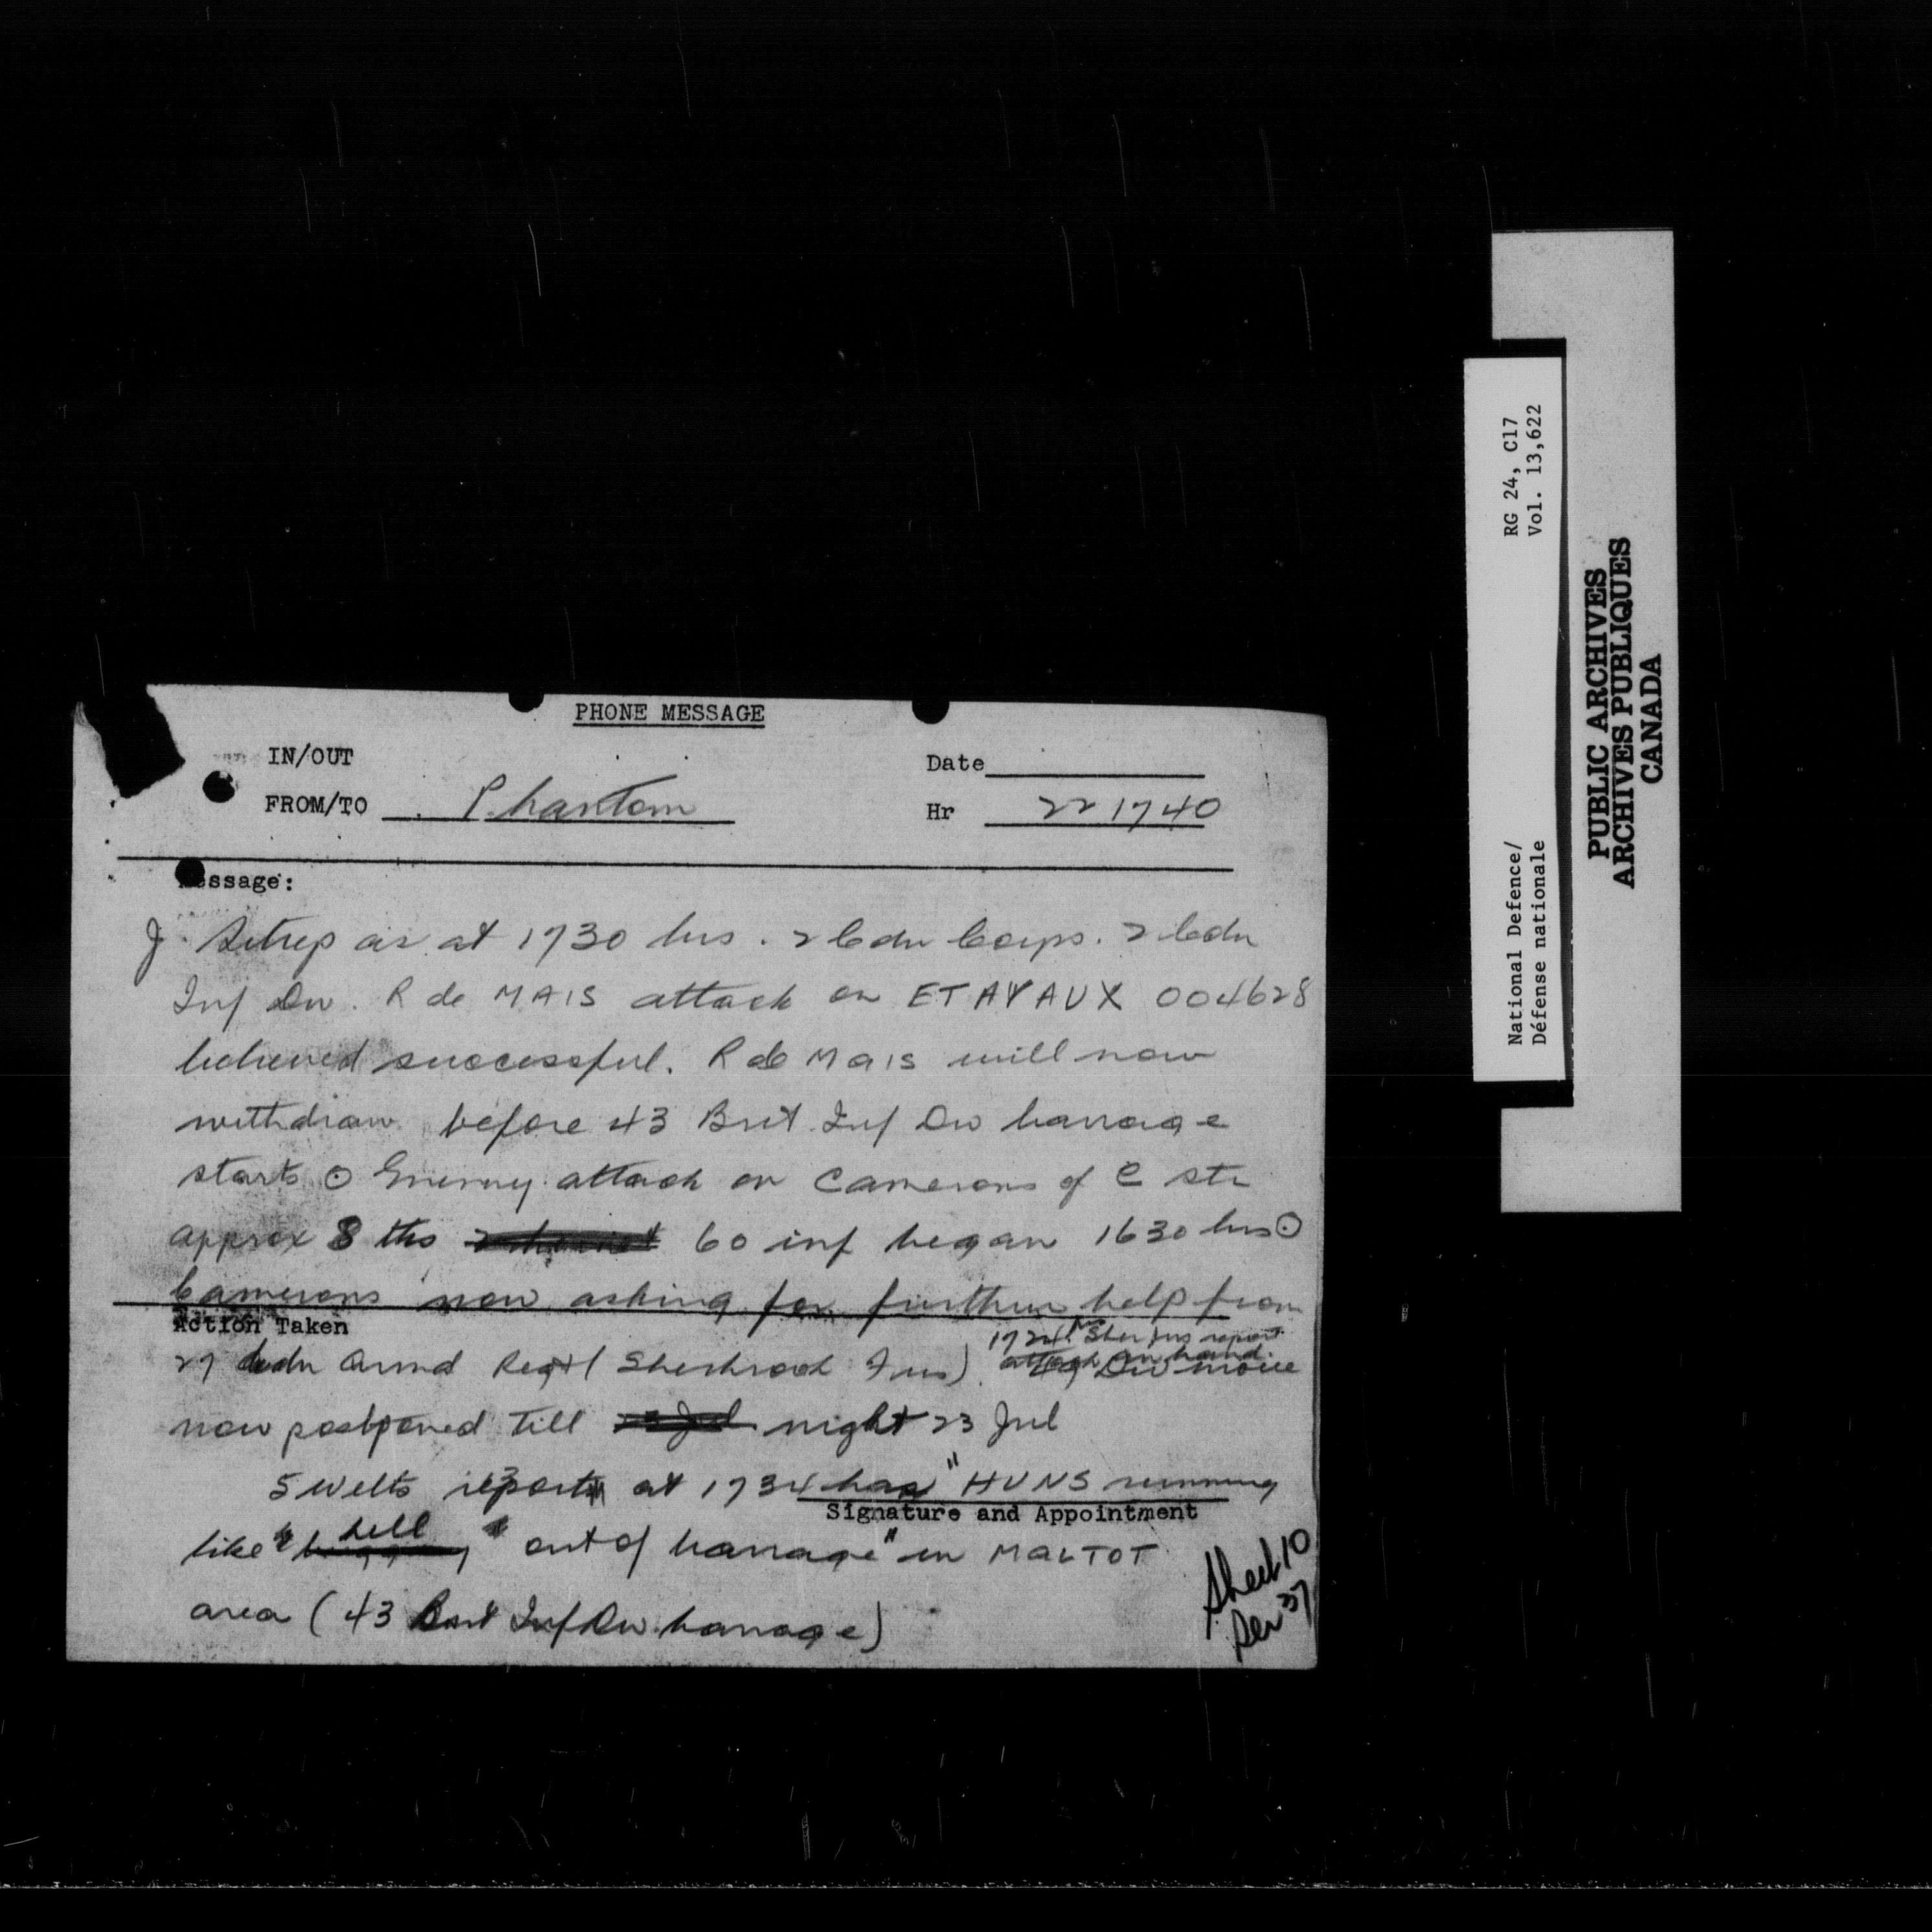 PHONE MESSAGE
IN/OUT
Date
FROM/TO Phantom
Hr 221740
Message:
J. Sitrep as at 1730 hrs. 2 Cdn Corps. 2 Cdn
Inf Div. R de MAIS attack on ETAVAUX 004628
believed successful. R de Mais will now
withdraw before 43 Brit Inf Div barrage
starts ⊙ Enemy attack on Camerons of C str
approx 8 tks 60 inf began 1630 hrs ⊙
Camerons now asking for further help from
Action Taken
1724 hrs Sher Fus report
attack in hand.
27 Cdn Armd Regt (Sherbrook Fus). Div move
now postponed till night 23 Jul
5 Wilts report at 1734 hrs "HUNS running
Signature and Appointment
like hell out of barrage" in MALTOT
area (43 Brit Inf Div barrage)
Sheet 10
Ser 37
National Defence/ RG 24, C17
Défense nationale Vol. 13,622
PUBLIC ARCHIVES
ARCHIVES PUBLIQUES
CANADA